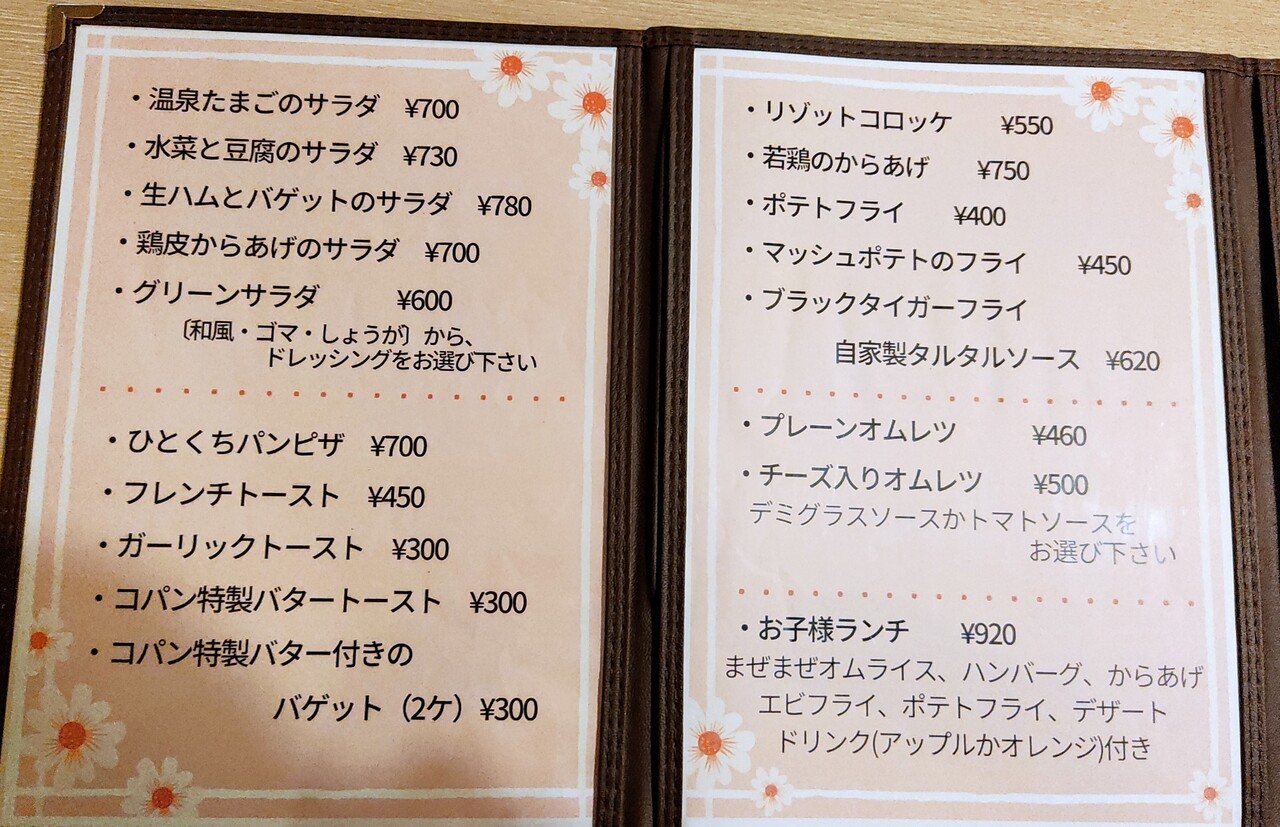 ・温泉たまごのサラダ ¥700
・水菜と豆腐のサラダ ¥730
・生ハムとバゲットのサラダ ¥780
・鶏皮からあげのサラダ ¥700
・グリーンサラダ ¥600
〔和風・ゴマ・しょうが〕から、
ドレッシングをお選び下さい
・ひとくちパンピザ ¥700
・フレンチトースト ¥450
・ガーリックトースト ¥300
・コパン特製バタートースト ¥300
・コパン特製バター付きの
バゲット（2ケ）¥300
・リゾットコロッケ ¥550
・若鶏のからあげ ¥750
・ポテトフライ ¥400
・マッシュポテトのフライ ¥450
・ブラックタイガーフライ
自家製タルタルソース ¥620
・プレーンオムレツ ¥460
・チーズ入りオムレツ ¥500
デミグラスソースかトマトソースを
お選び下さい
・お子様ランチ ¥920
まぜまぜオムライス、ハンバーグ、からあげ
エビフライ、ポテトフライ、デザート
ドリンク(アップルかオレンジ)付き